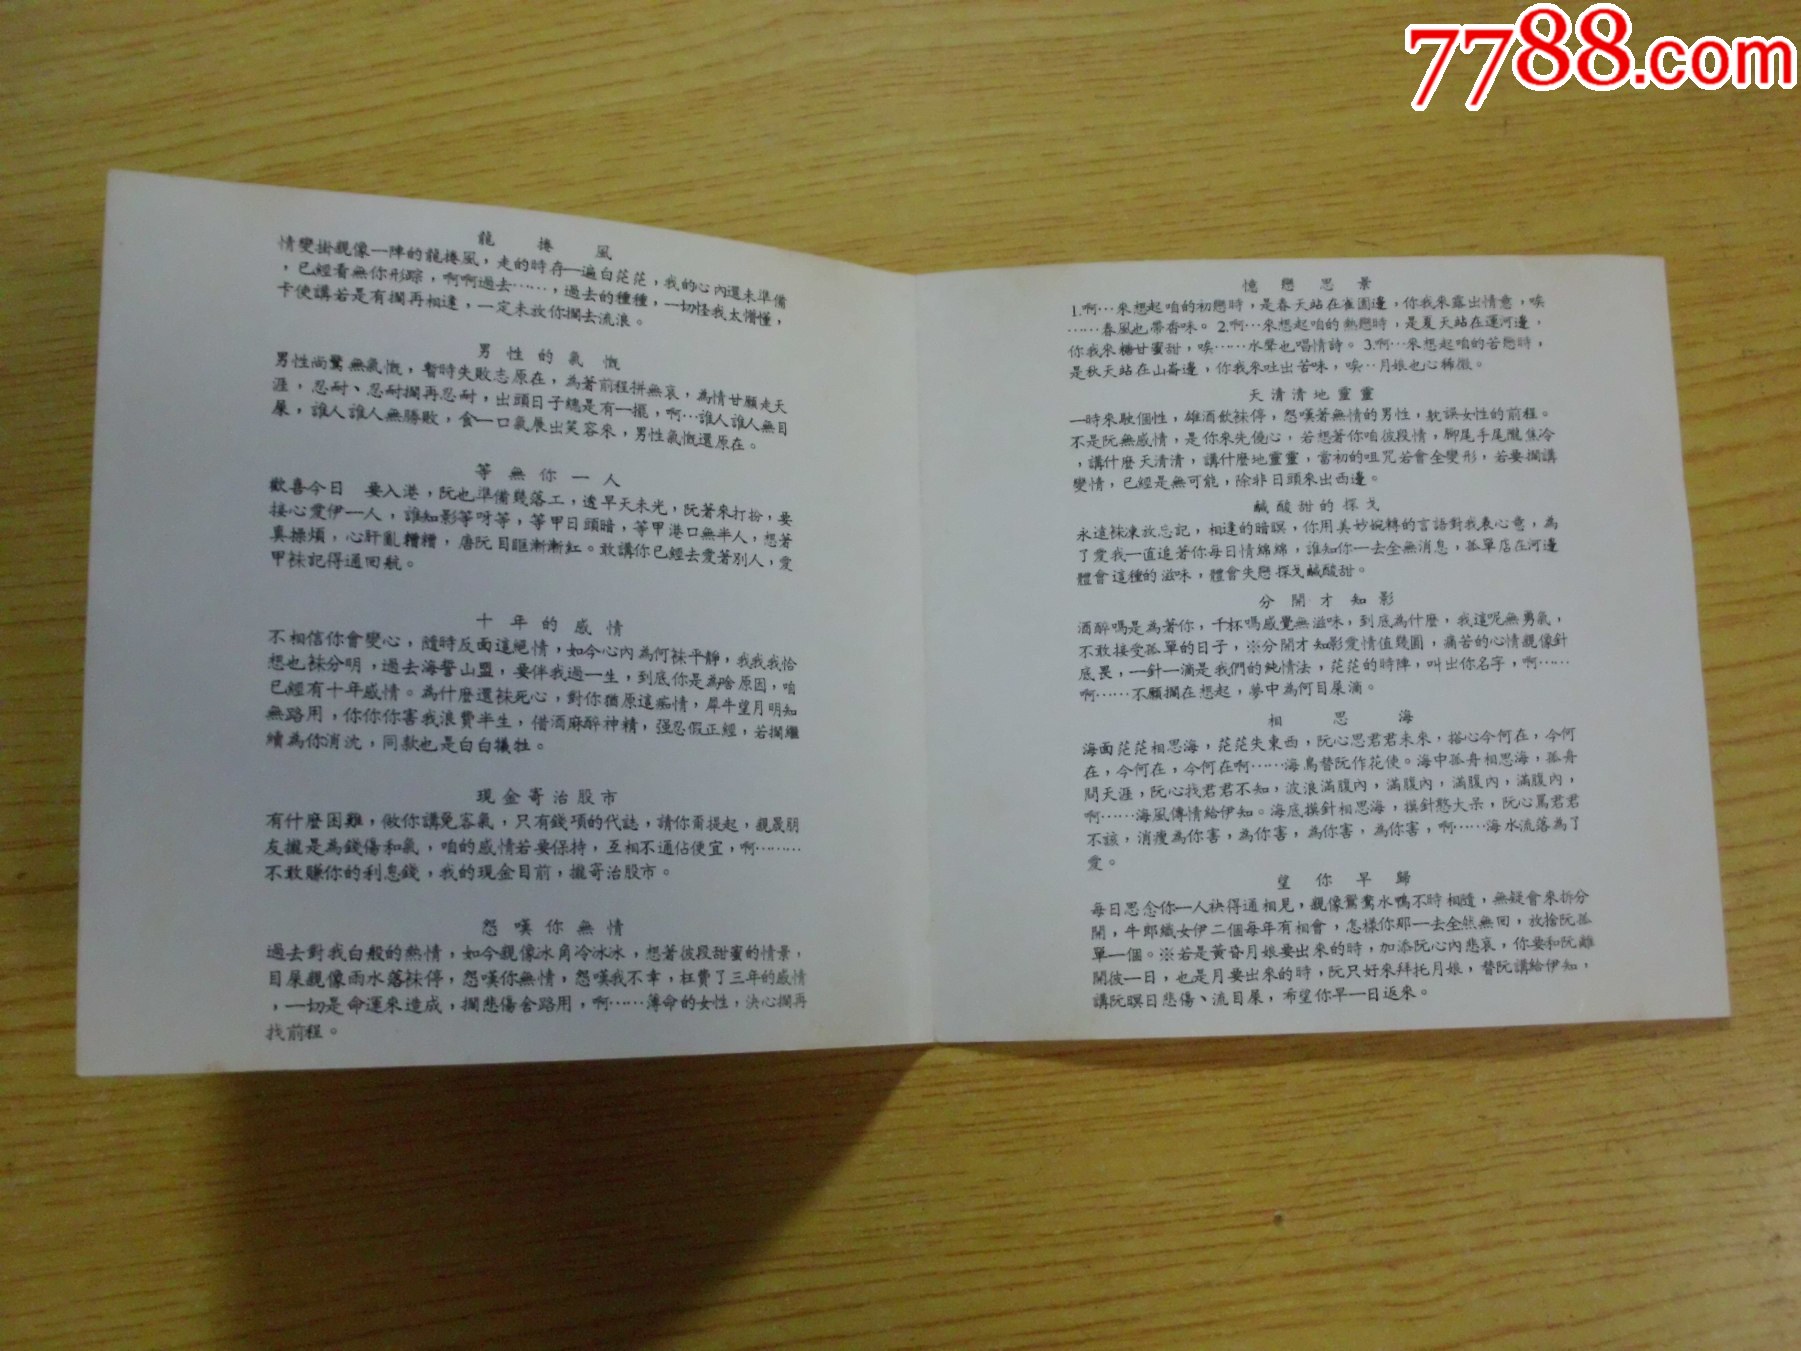 7788.com
龍捲風
情變掛親像一陣的龍捲風，走的時存一遍白茫茫，我的心內還未準備
，已經看無你形踪，啊啊過去……，過去的種種，一切怪我太懵懂，
卡使講若是有擱再相逢，一定未放你擱去流浪。
男性的氣慨
男性尚驚無氣慨，暫時失敗志原在，為著前程拼無哀，為情甘願走天
涯，忍耐、忍耐擱再忍耐，出頭日子總是有一擺，啊…誰人誰人無目
屎，誰人誰人無勝敗，食一口氣展出笑容來，男性氣慨還原在。
等無你一人
歡喜今日 要入港，阮也準備幾落工，透早天未光，阮著來打扮，要
接心愛伊一人，誰知影等呀等，等甲日頭暗，等甲港口無半人，想著
真操煩，心肝亂糟糟，磨阮目眶漸漸紅。敢講你已經去愛著別人，愛
甲袜記得通回航。
十年的感情
不相信你會變心，隨時反面這絕情，如今心內為何袜平靜，我我我恰
想也袜分明，過去海誓山盟，要伴我過一生，到底你是為啥原因，咱
已經有十年感情。為什麼還袜死心，對你猶原這痴情，犀牛望月明知
無路用，你你你害我浪費半生，借酒麻醉神精，强忍假正經，若擱繼
續為你消沈，同款也是白白犧牲。
現金寄治股市
有什麼困難，做你講免客氣，只有錢項的代誌，請你甭提起，親晟朋
友攏是為錢傷和氣，咱的感情若要保持，互相不通佔便宜，啊………
不敢賺你的利息錢，我的現金目前，攏寄治股市。
怨嘆你無情
過去對我白般的熱情，如今親像冰角冷冰冰，想著彼段甜蜜的情景，
目屎親像雨水落袜停，怨嘆你無情，怨嘆我不幸，枉費了三年的感情
，一切是命運來造成，擱悲傷舍路用，啊……薄命的女性，決心擱再
找前程。
憶戀思景
1.啊…來想起咱的初戀時，是春天站在崔園邊，你我來露出情意，唉
……春風也帶香味。2.啊…來想起咱的熱戀時，是夏天站在運河邊，
你我來糖甘蜜甜，唉……水聲也唱情詩。3.啊…來想起咱的苦戀時，
是秋天站在山崙邊，你我來吐出苦味，唉…月娘也心稀微。
天清清地靈靈
一時來駛個性，雄酒飲袜停，怨嘆著無情的男性，耽誤女性的前程。
不是阮無感情，是你來先僥心，若想著你咱彼段情，腳尾手尾攏焦冷
，講什麼天清清，講什麼地靈靈，當初的咀咒若會全變形，若要擱講
變情，已經是無可能，除非日頭來出西邊。
鹹酸甜的探戈
永遠袜凍放忘記，相逢的暗暝，你用美妙婉轉的言語對我表心意，為
了愛我一直追著你每日情綿綿，誰知你一去全無消息，孤單店在河邊
體會這種的滋味，體會失戀探戈鹹酸甜。
分開才知影
酒醉嗎是為著你，千杯嗎感覺無滋味，到底為什麼，我這呢無勇氣，
不敢接受孤單的日子，※分開才知影愛情值幾圓，痛苦的心情親像針
底畏，一針一滴是我們的純情法，茫茫的時陣，叫出你名字，啊……
啊……不願擱在想起，夢中為何目屎滴。
相思海
海面茫茫相思海，茫茫失東西，阮心思君君未來，搭心今何在，今何
在，今何在，今何在啊……海鳥替阮作花使。海中孤舟相思海，孤舟
問天涯，阮心找君君不知，波浪滿腹內，滿腹內，滿腹內，滿腹內，
啊……海風傳情給伊知。海底摸針相思海，摸針憨大呆，阮心罵君君
不該，消瘦為你害，為你害，為你害，為你害，啊……海水流落為了
愛。
望你早歸
每日思念你一人袂得通相見，親像鴛鴦水鴨不時相逢，無疑會來拆分
開，牛郎織女伊二個每年有相會，怎樣你那一去全然無回，放捨阮孤
單一個。※若是黃昏月娘要出來的時，加添阮心內悲哀，你要和阮離
開彼一日，也是月要出來的時，阮只好來拜托月娘，替阮講給伊知，
講阮暝日悲傷、流目屎，希望你早一日返來。